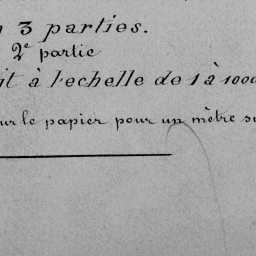 3 parties.
2e partie
à l'echelle de 1 à 1000
sur le papier pour un mètre